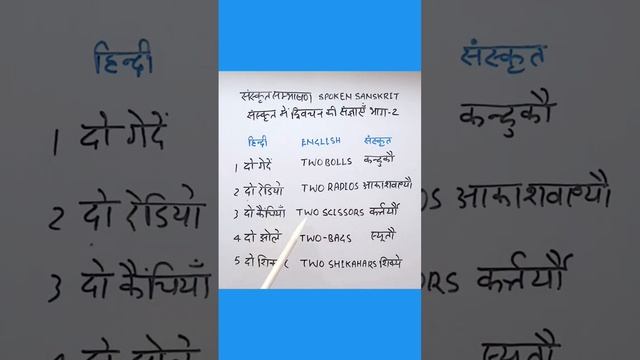 संस्कृत सम्भाषण SPOKEN SANSKRIT
संस्कृत में द्विवचन की संज्ञाएँ भाग-2
हिन्दी ENGLISH संस्कृत
1 दो गेदें TWO BOLLS कन्दुकौ
2 दो रेडियो TWO RADIOS आकाशवाण्यौ
3 दो कैंचियाँ TWO SCISSORS कर्तर्यौ
4 दो झोले TWO-BAGS स्यूतौ
5 दो TWO SHIKAHARS शिक्ये
हिन्दी
1 दो गेदें
2 दो रेडियो
3 दो कैंचियाँ
संस्कृत
कन्दुकौ
OS आकाशवाण्यौ
ORS कर्तर्यौ
स्यूतौ